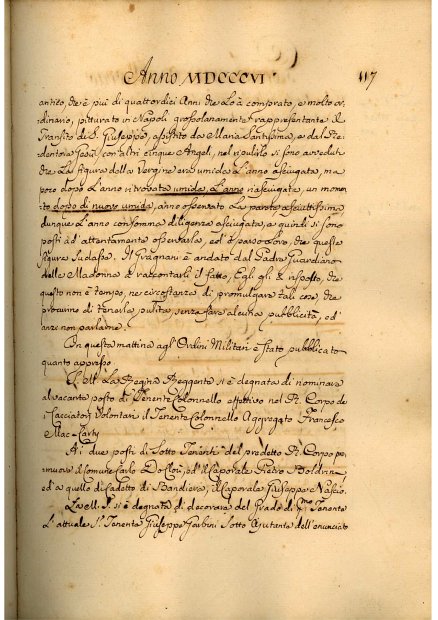 Anno MDCCCVI 117
antico, che è più di quattordici Anni che Lo à comprato, e molto or-
dinario, pitturato in Napoli grossolanamente rappresentante il
Transito di S. Giuseppe, assistito da Maria Santissima, e dal Re-
dentore Gesù con altri cinque Angeli, nel ripulirlo si sono avveduti
che La figura della Vergine era umida L'anno asciugata, ma
poco dopo L'anno ritrovata umida, L'anno riasciugata, un momen-
to dopo di nuovo umida, anno osservato La parete asciuttissima
dunque L'anno con somma diligenza asciugata, e quindi si sono
posti ad attentamente osservarla, ed è parso Loro, che questa
figura sudasse. Il Gragnani è andato dal Padre Guardiano
della Madonna a raccontarli il fatto, Egli gli à risposto, che
questo non è tempo, ne circostanze di promulgare tali cose, che
procurino di tenerla pulita, senza fare alcuna pubblicità, ed
anzi non parlarne.
In questa mattina agl'Ordini Militari è stato pubblicato
quanto appresso.
S. M. La Regina Reggente si è degnata di nominare
al vacante posto di Tenente Colonnello effettivo nel R. Corpo de'
Cacciatori Volontari il Tenente Colonnello Aggregato Francesco
Mac-Carty
Ai due posti di Sotto Tenenti del predetto R. Corpo pro-
muove il Comune Carlo ed il Caporale Pietro Boldrini
ed a quello di Cadetto di Bandiera, il Caporale Giuseppe Nascio.
La M. S. si è degnata di decorare del Grado di P.mo Tenente
L'attuale S. Tenente Giuseppe Sotto Ajutante dell'enunciato